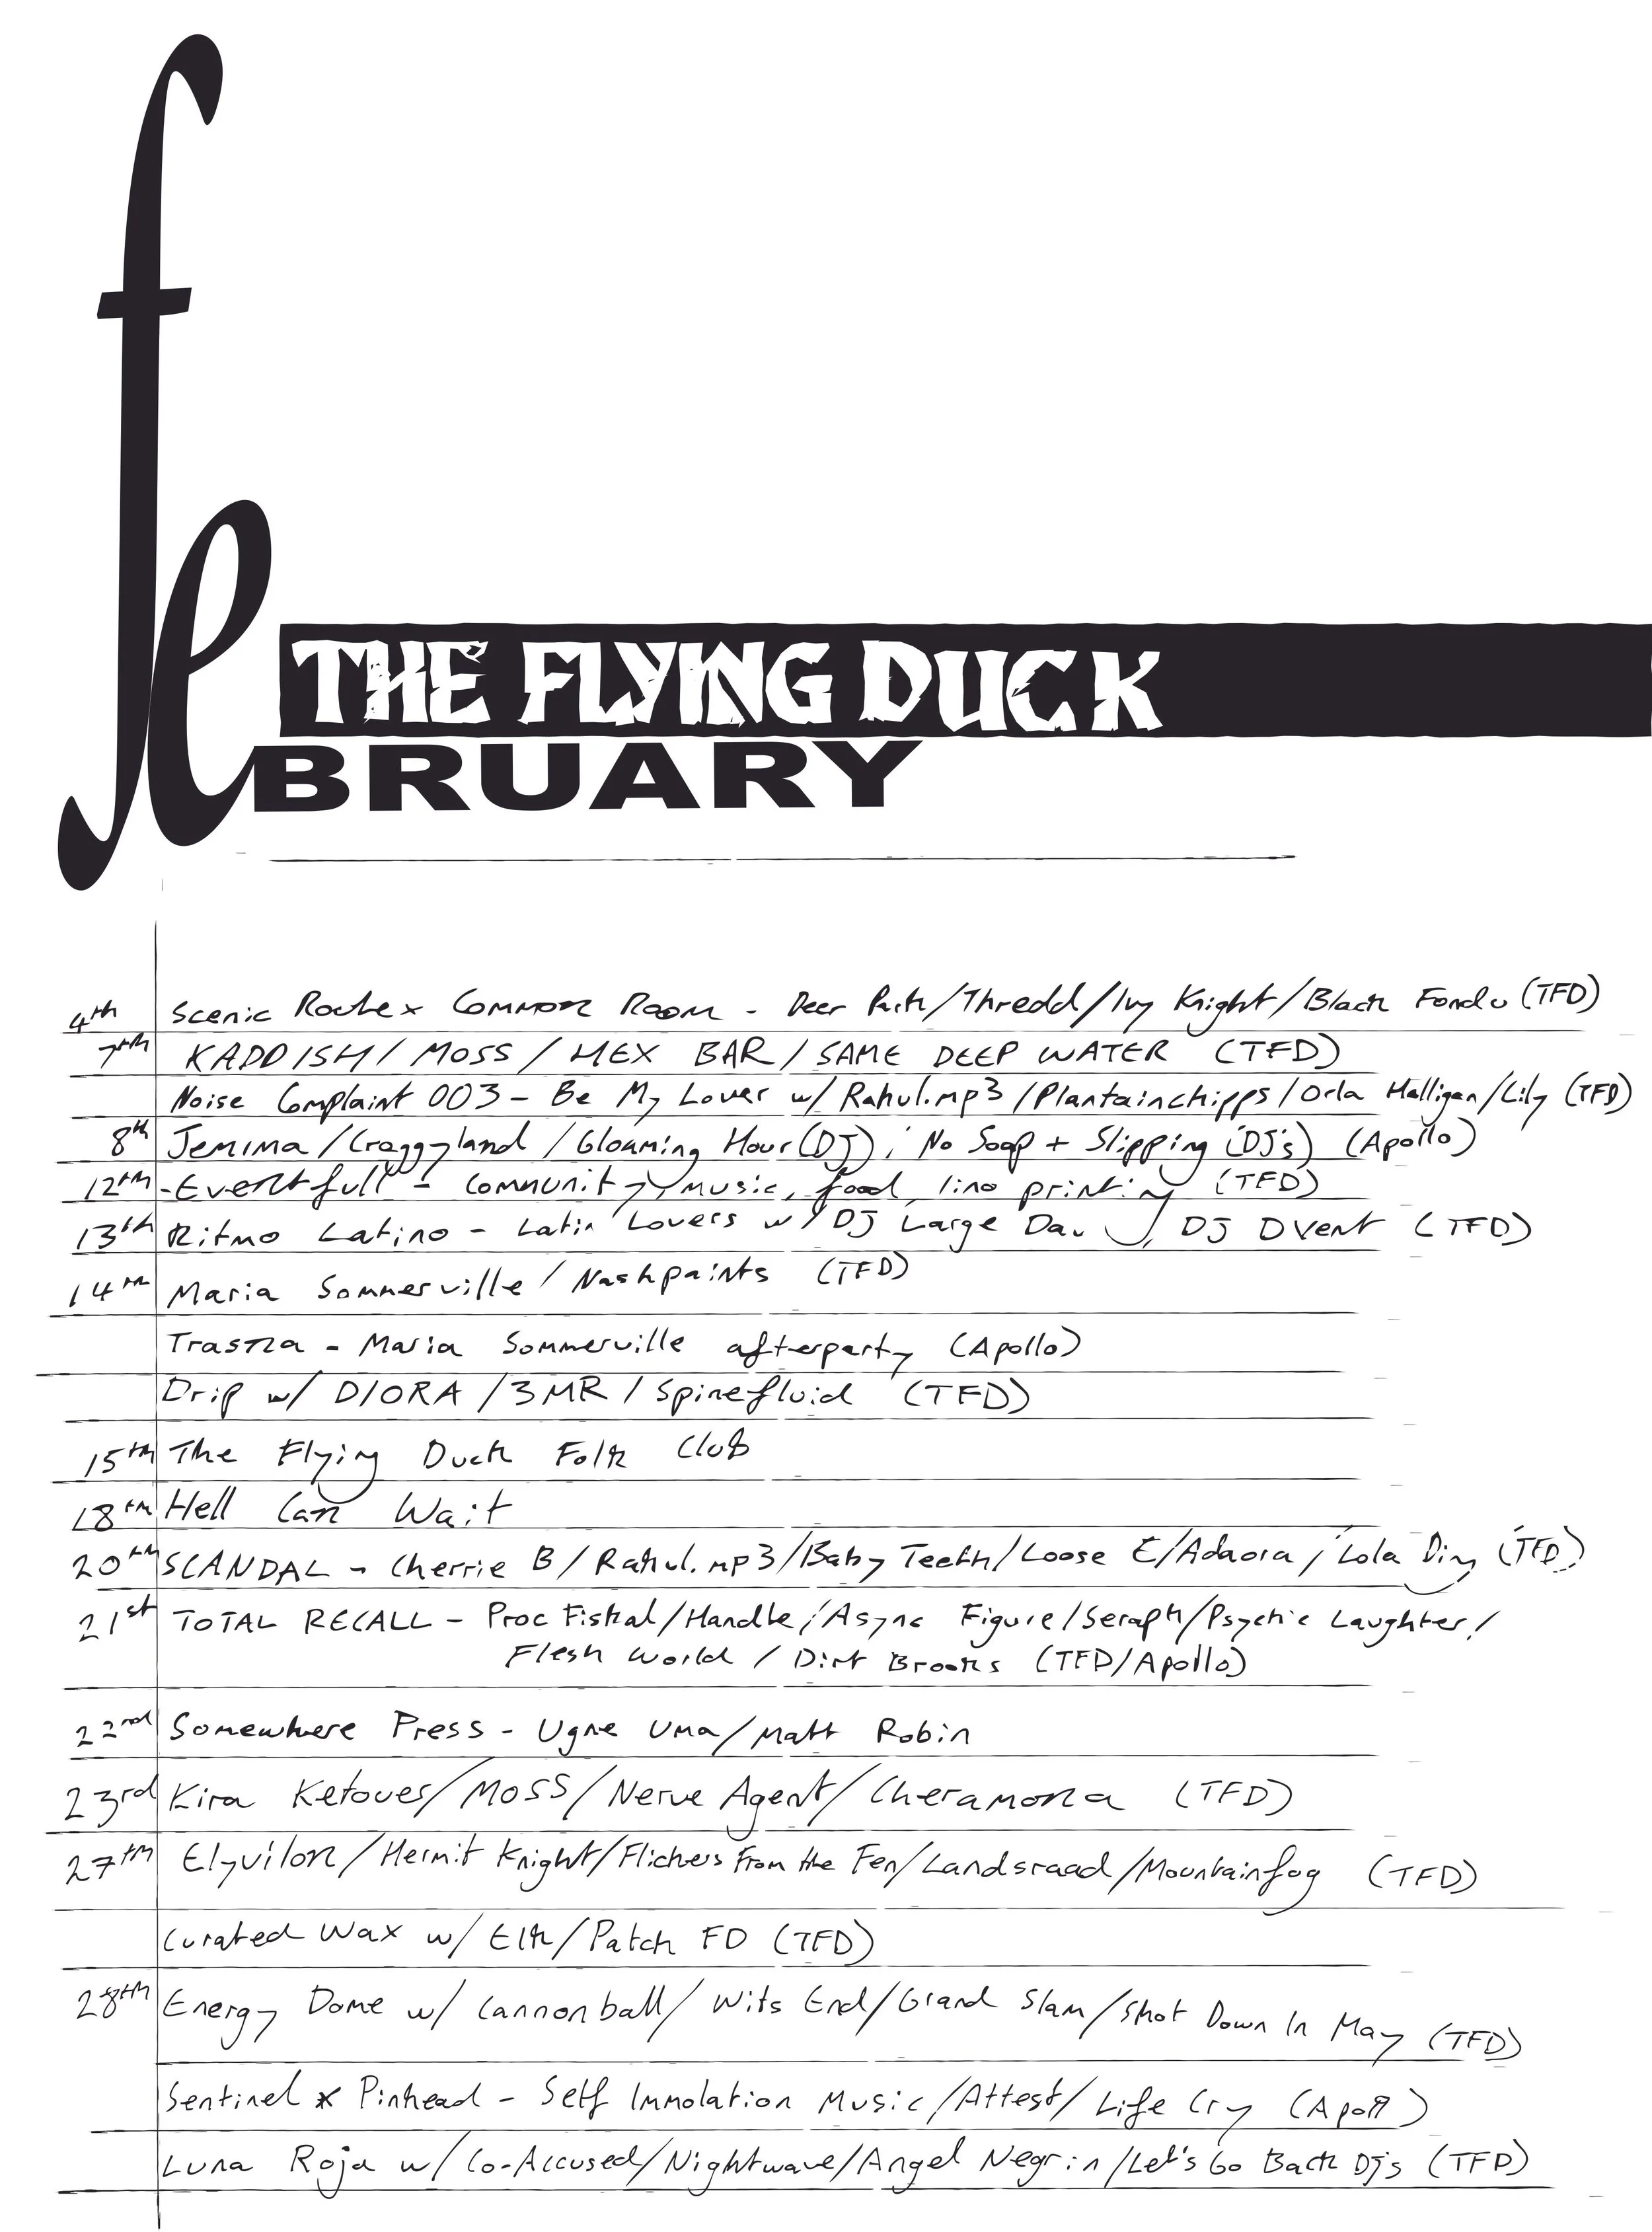 fe
THE FLYING DUCK
BRUARY
4th Scenic Route x Common Room - Deer Park/Thredd/Ivy Knight/Black Fondu (TFD)
7th KADDISH/MOSS/HEX BAR/SAME DEEP WATER (TFD)
Noise Complaint 003 - Be My Lover w/ Rahul.mp3/Plantainchipps/Orla Halligan/Lily (TFD)
8th Jemima/Craggyland/Gloaming Hour (DJ)/No Soap + Slipping (DJ's) (Apollo)
12th - Eventfull - community, music, food, lino printing (TFD)
13th Ritmo Latino - Latin Lovers w/ DJ Large Dav, DJ DVent (TFD)
14th Maria Sommerville/Nashpaints (TFD)
Trasna - Maria Sommerville afterparty (Apollo)
Drip w/ DIORA/3MR/Spinefluid (TFD)
15th The Flying Duck Folk Club
18th Hell Can Wait
20th SCANDAL - Cherrie B/Rahul.mp3/Baby Teeth/Loose E/Adaora/Lola Diny (TFD)
21st TOTAL RECALL - Proc Fiskal/Handle/Async Figure/Seraph/Psychic Laughter/
Flesh World/Dirt Brooks (TFD/Apollo)
22nd Somewhere Press - Ugne Uma/Matt Robin
23rd Kira Ketoves/MOSS/Nerve Agent/Cheramona (TFD)
27th Elyvilon/Hermit Knight/Flickers From the Fen/Landsraad/Mountainfog (TFD)
Curated Wax w/ Elk/Patch FD (TFD)
28th Energy Dome w/ Cannonball/Wits End/Grand Slam/Shot Down In May (TFD)
Sentinel x Pinhead - Self Immolation Music/Attest/Life Cry (Apoll)
Luna Roja w/ Co-Accused/Nightwave/Angel Negrin/Let's Go Back Djs (TFD)